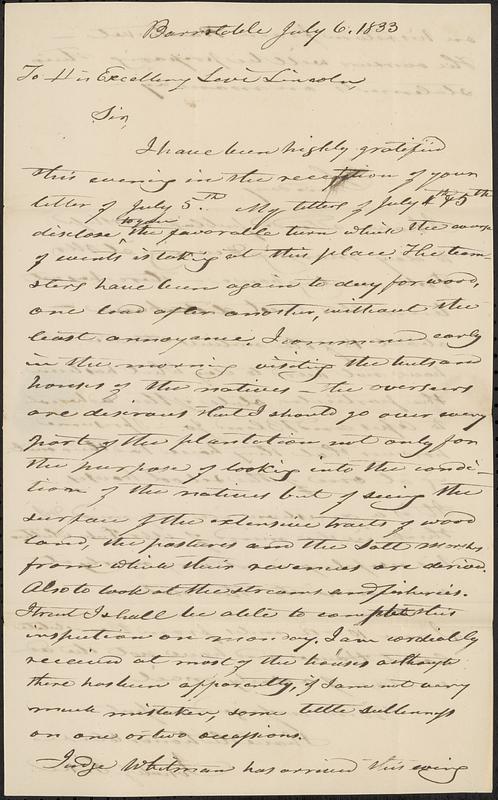 Barnstable July 6. 1833
To His Excellency Levi Lincoln,
Sir,
I have been highly gratified
this evening in the reception of your
letter of July 5.th My letters of July 4th & 5th
disclose to you the favorable turn which the course
of events is taking at this place. The team-
sters have been again to day for wood,
one load after another, without the
least annoyance. I commenced early
in the morning visiting the huts and
houses of the natives – the overseers
are desirous that I should go over every
part of the plantation not only for
the purpose of looking into the condi-
tion of the natives but of seeing the
surface of the extensive tracts of wood
land, the pastures and the Salt works
from which their revenues are derived.
Also to look at the streams and fisheries.
I trust I shall be able to complete this
inspection on monday. I am cordially
received at most of the houses although
there has been apparently, if I am not very
much mistaken, some little sullenness
on one or two occasions.
Judge Whitman has arrived this evening